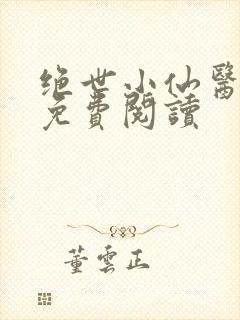 绝世小仙醫
免費閱讀
董雲正